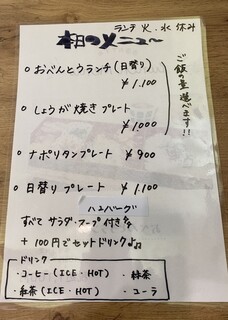 ランチ 火、水 休み
本日のメニュー
○ おべんとうランチ(日替り)
¥1.100
○ しょうが焼き プレート
¥1.100
○ ナポリタンプレート ¥900
○ 日替り プレート ¥1.100
ハンバーグ
すべて サラダ・スープ 付き
+100円でセットドリンク♪
ご飯の量 選べます!!
ドリンク
・コーヒー(ICE・HOT) ・緑茶
・紅茶(ICE・HOT) ・コーラ